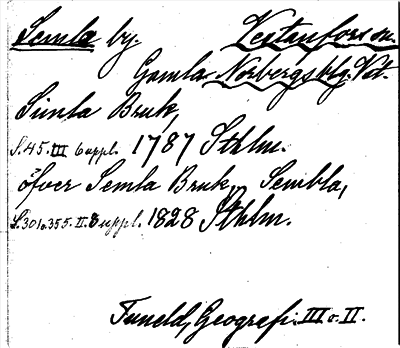 Semla by. Vestanfors sn.
Gamla Norbergs blg. Vst.
Simla Bruk,
S. 45. III 6 uppl. 1787 Sthlm.
öfver Semla Bruk, Sembla,
S. 301 o. 355. II. 8 uppl. 1828 Sthlm.
Tuneld, Geografi. III o. II.